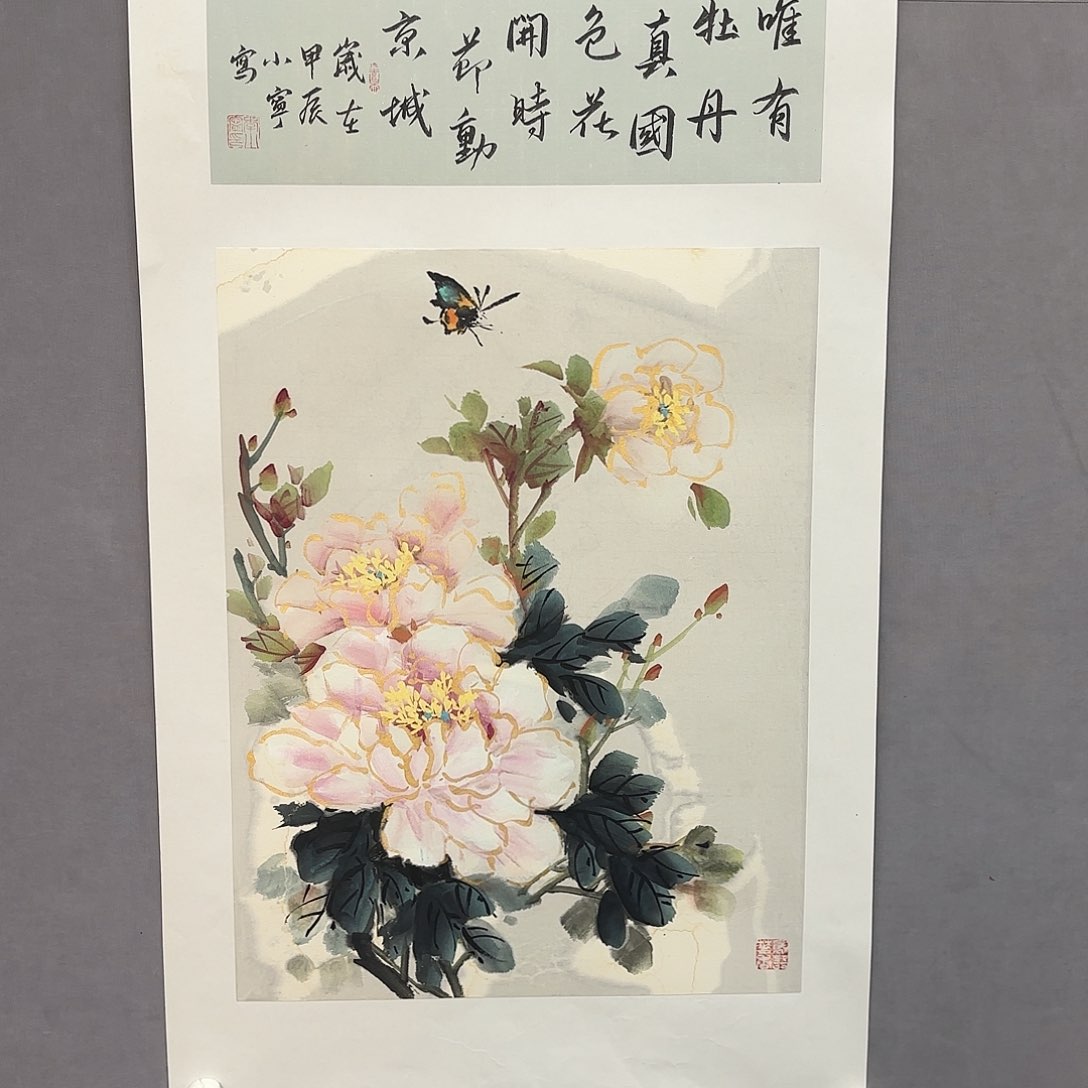 唯有
牡丹
真國
色花
開時
節動
京城
歲在
甲辰
小寧
寫